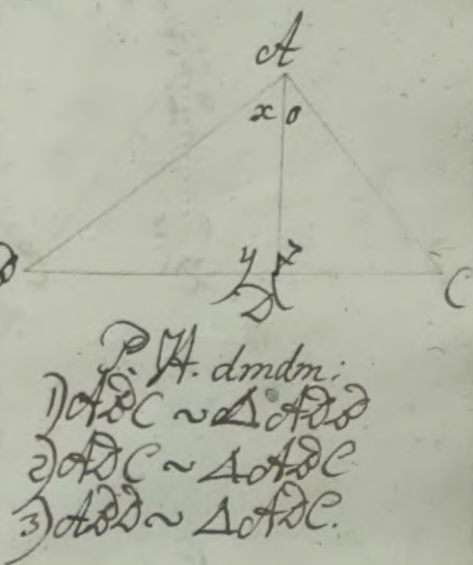 A
x o
B y z C
D
P. H. dmdm:
1) ABC ~ Δ ABD
2) ABC ~ Δ ADC
3) ABD ~ Δ ADC.